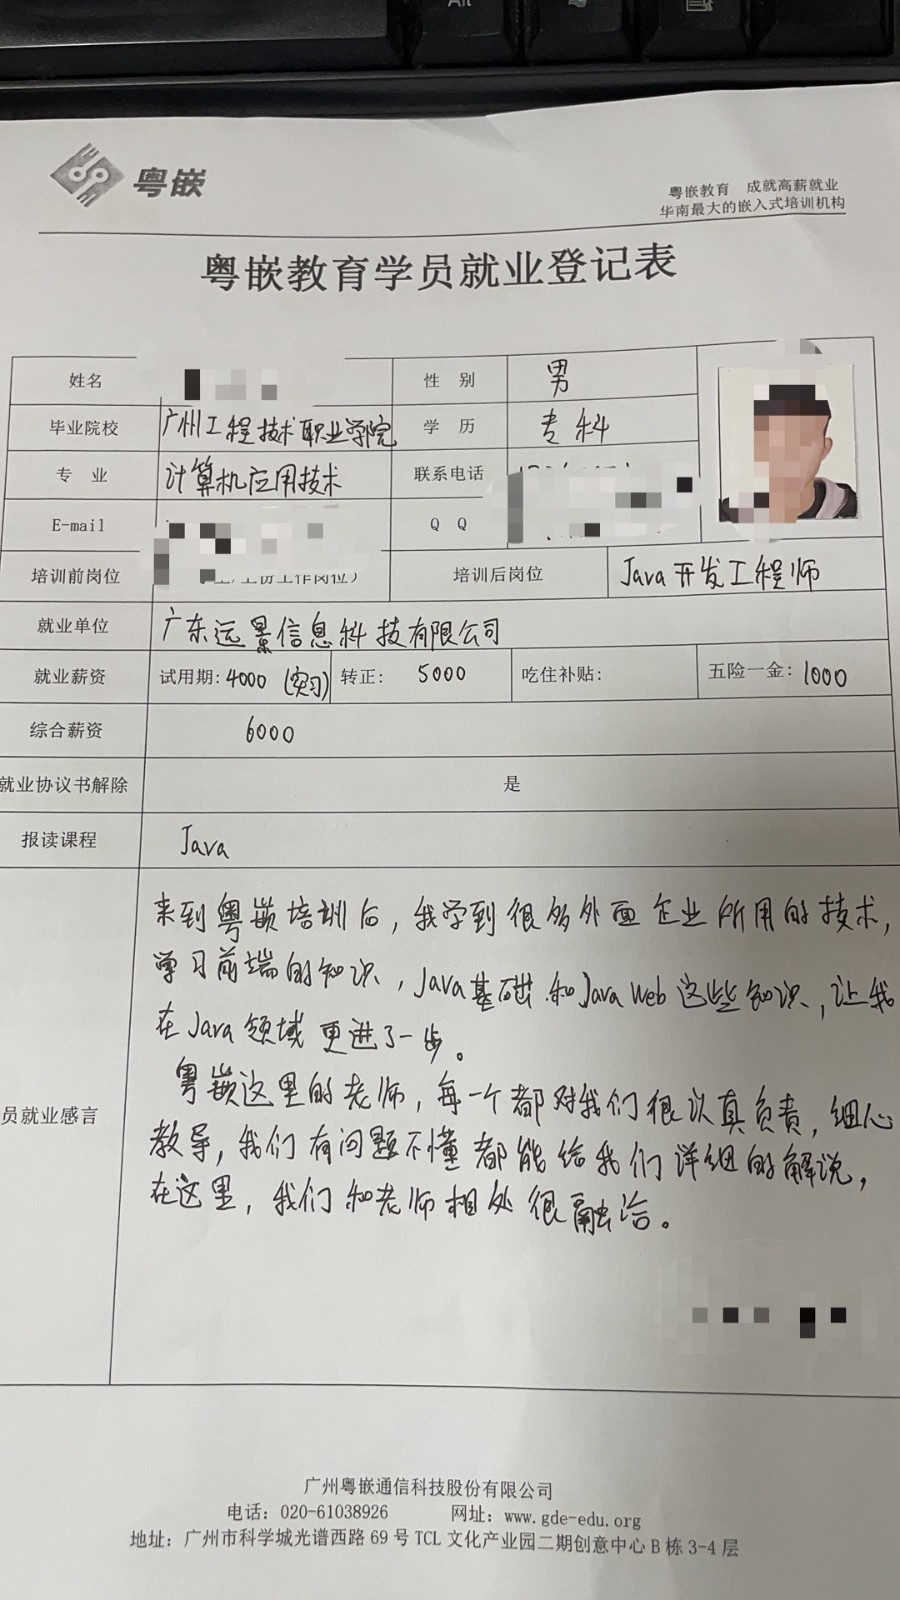 Alt
粤嵌
粤嵌教育 成就高薪就业
华南最大的嵌入式培训机构
粤嵌教育学员就业登记表
姓名 性 别 男
毕业院校 广州工程技术职业学院 学 历 专科
专 业 计算机应用技术 联系电话
E-mail Q Q
培训前岗位 工作岗位） 培训后岗位 Java开发工程师
就业单位 广东远景信息科技有限公司
就业薪资 试用期：4000（实习） 转正： 5000 吃住补贴： 五险一金：1000
综合薪资 6000
就业协议书解除 是
报读课程 Java
员就业感言
来到粤嵌培训后，我学到很多外面企业所用的技术，
学习前端的知识，Java基础和Java Web这些知识，让我
在Java领域更进了一步。
粤嵌这里的老师，每一个都对我们很认真负责，细心
教导，我们有问题不懂都能给我们详细的解说，
在这里，我们和老师相处很融洽。
广州粤嵌通信科技股份有限公司
电话：020-61038926 网址：www.gde-edu.org
地址：广州市科学城光谱西路69号TCL文化产业园二期创意中心B栋3-4层